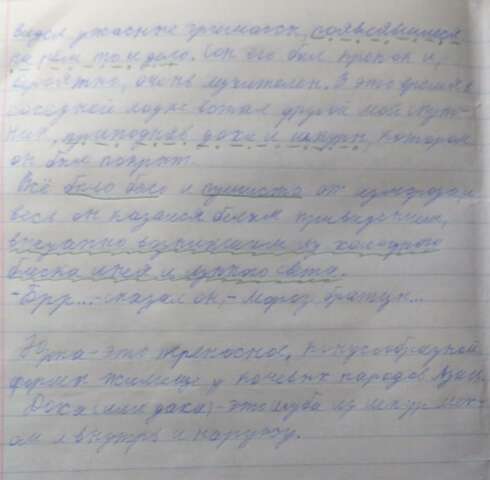 видел ужасные гримасы, появлявшиеся
на нём то и дело. Сон его был крепок и,
вероятно, очень мучителен. В это время в
соседней лодке встал другой мой спут-
ник, приподняв доху и шкуры, которой
он был покрыт.
Всё было бело и пушисто от изморози,
весь он казался белым привидением,
внезапно возникшим из холодного
блеска инея и лунного света.
- Брр... - сказал он, - Мороз, братцы...
Юрта - это переносное, конусообразной
формы жилище у кочевых народов Азии.
Доха (или даха) - это шуба из шкур мех-
ом внутрь и наружу.